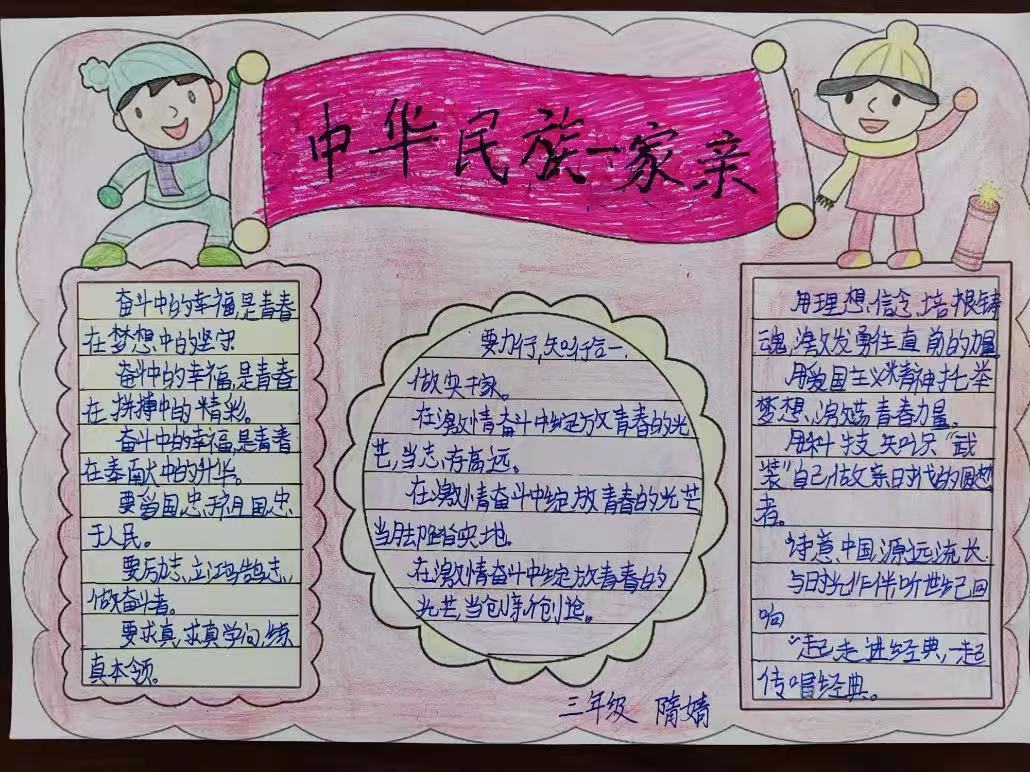 中华民族一家亲
奋斗中的幸福,是青春
在梦想中的坚守
奋斗中的幸福,是青春
在拼搏中的精彩。
奋斗中的幸福,是青春
在奉献中的升华。
要爱国,忠 国,忠
于人民。
要励志,立鸿鹄志,
做奋斗者。
要求真,求真学问,练
真本领。
要力行,知行合一,
做实干家。
在激情奋斗中绽放青春的光
芒,当志存高远。
在激情奋斗中绽放青春的光芒
当脚踏实地。
在激情奋斗中绽放青春的
光芒,当创新创造。
用理想,信念,培根铸
魂,激发勇往直前的力量
用爱国主义精神托举
梦想,激荡青春力量。
用科技知识“武
装”自己,做 时代的圆梦
者。
“诗意,中国,源远流长
与时光作伴听世纪回
响
“起走进经典,一起
传唱经典。
三年级 隋婧